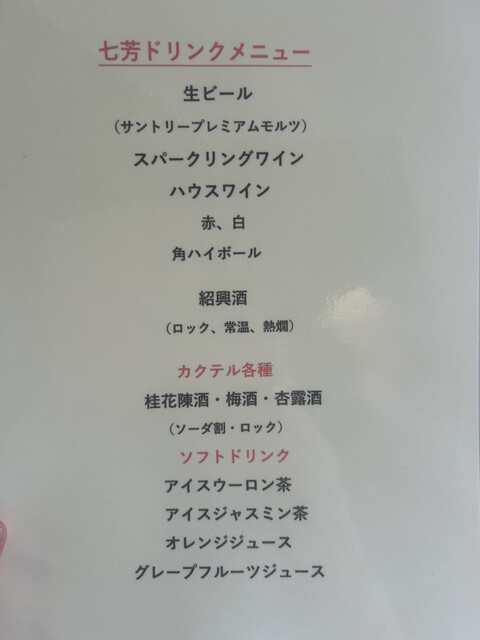 七芳ドリンクメニュー
生ビール
（サントリープレミアムモルツ）
スパークリングワイン
ハウスワイン
赤、白
角ハイボール
紹興酒
（ロック、常温、熱燗）
カクテル各種
桂花陳酒・梅酒・杏露酒
（ソーダ割・ロック）
ソフトドリンク
アイスウーロン茶
アイスジャスミン茶
オレンジジュース
グレープフルーツジュース